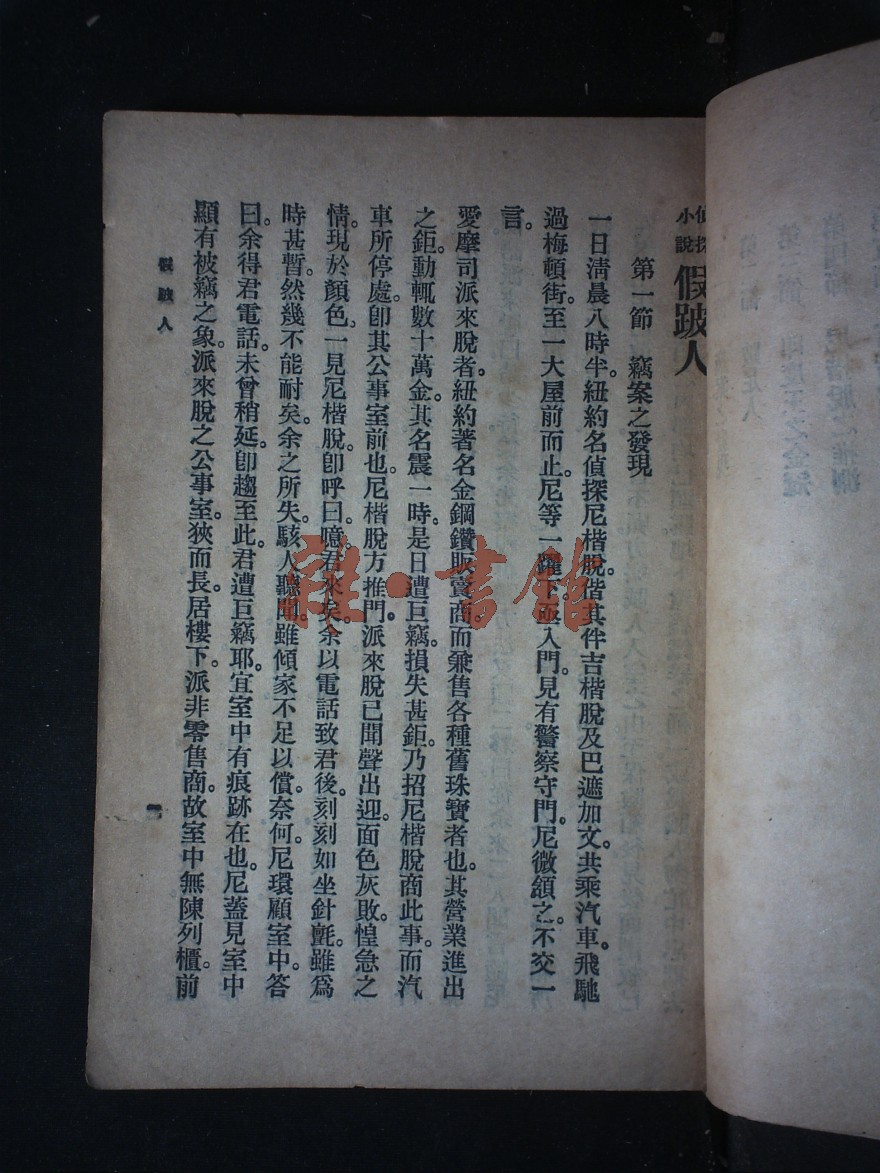 偵探小說 假跛人
第一節　竊案之發現
一日清晨八時半。紐約名偵探尼楷脫。偕其伴吉楷脫及巴遮加文。共乘汽車。飛馳
過梅頓街。至一大屋前而止。尼等一躍下。亟入門。見有警察守門。尼微頷之。不交一
言。
愛摩司派來脫者。紐約著名金鋼鑽販賣商。而兼售各種舊珠寶者也。其營業進出
之鉅。動輒數十萬金。其名震一時。是日遭巨竊。損失甚鉅。乃招尼楷脫商此事。而汽
車所停處。卽其公事室前也。尼楷脫方推門。派來脫已聞聲出迎。面色灰敗。惶急之
情。現於顏色。一見尼楷脫。卽呼曰。噫。君來矣。余以電話致君後。刻刻如坐針氈。雖爲
時甚暫。然幾不能耐矣。余之所失。駭人聽聞。雖傾家不足以償。奈何。尼環顧室中。答
曰。余得君電話。未曾稍延。卽趨至此。君遭巨竊耶。宜室中有痕跡在也。尼蓋見室中
顯有被竊之象。派來脫之公事室。狹而長。居樓下。派非零售商。故室中無陳列櫃。前
假跛人
一
雜·書館